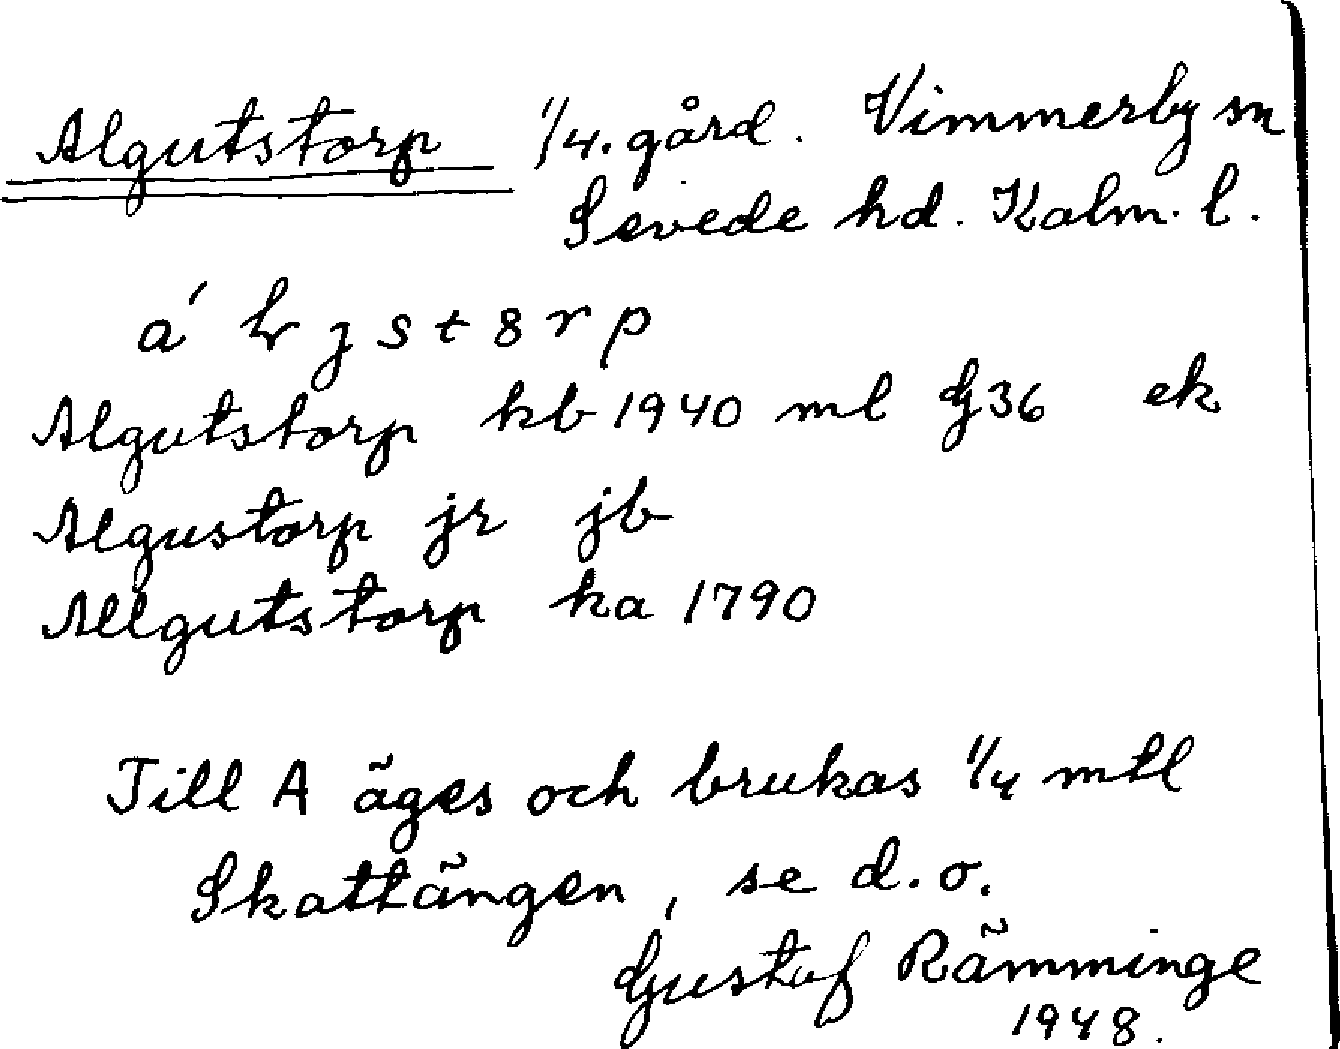 Algutstorp 1/4. gård. Vimmerby sn
Sevede hd. Kalm. l.
Algutstorp kb 1940 ml G36 ek
Algustorp jr jb
Allgutstorp ka 1790
Till A äges och brukas 1/4 mtl
Skattängen, se d.o.
Gustaf Rämminge
1948.